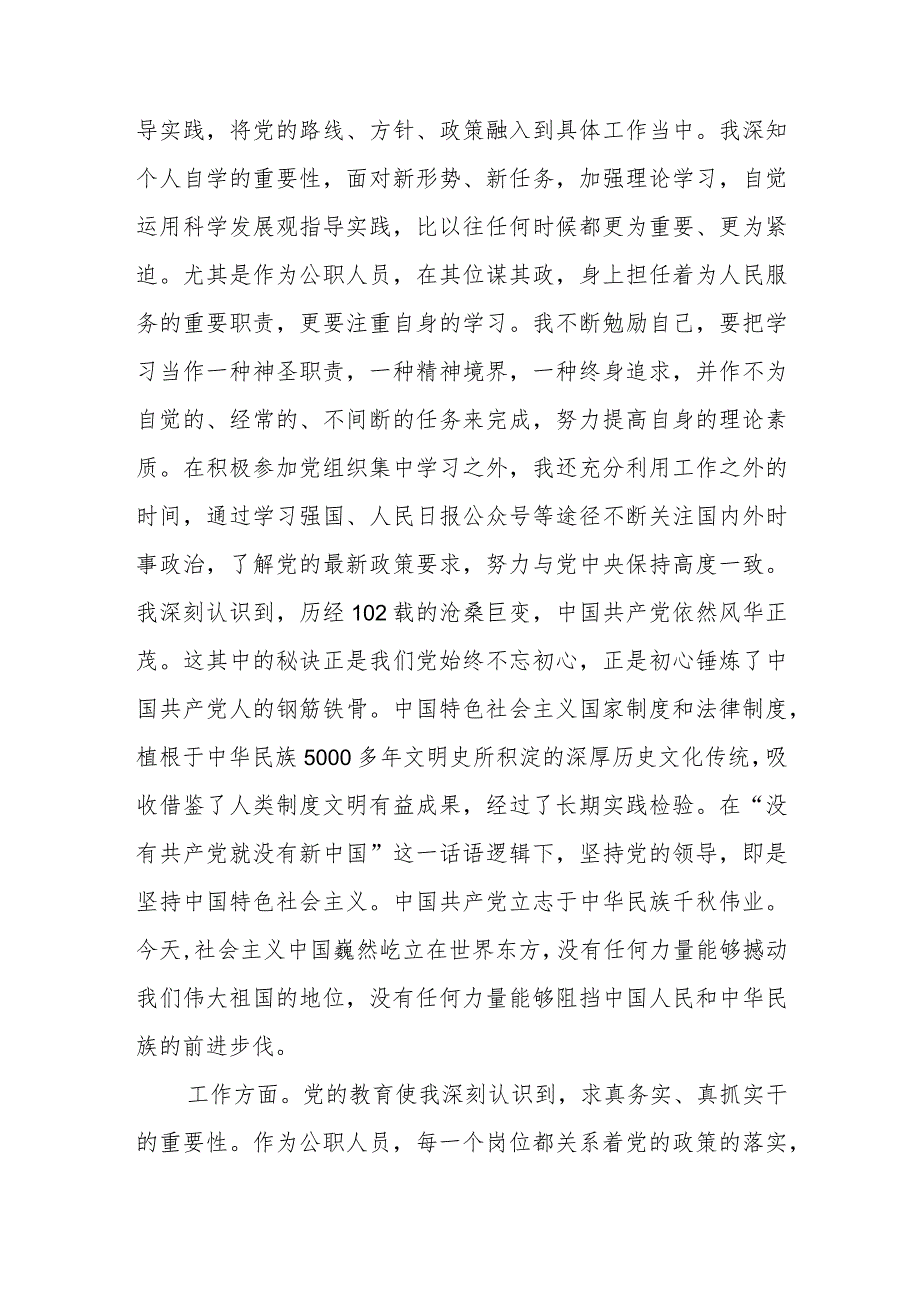 导实践，将党的路线、方针、政策融入到具体工作当中。我深知
个人自学的重要性，面对新形势、新任务，加强理论学习，自觉
运用科学发展观指导实践，比以往任何时候都更为重要、更为紧
迫。尤其是作为公职人员，在其位谋其政，身上担任着为人民服
务的重要职责，更要注重自身的学习。我不断勉励自己，要把学
习当作一种神圣职责，一种精神境界，一种终身追求，并作不为
自觉的、经常的、不间断的任务来完成，努力提高自身的理论素
质。在积极参加党组织集中学习之外，我还充分利用工作之外的
时间，通过学习强国、人民日报公众号等途径不断关注国内外时
事政治，了解党的最新政策要求，努力与党中央保持高度一致。
我深刻认识到，历经 102 载的沧桑巨变，中国共产党依然风华正
茂。这其中的秘诀正是我们党始终不忘初心，正是初心锤炼了中
国共产党人的钢筋铁骨。中国特色社会主义国家制度和法律制度，
植根于中华民族 5000 多年文明史所积淀的深厚历史文化传统，吸
收借鉴了人类制度文明有益成果，经过了长期实践检验。在“没
有共产党就没有新中国”这一话语逻辑下，坚持党的领导，即是
坚持中国特色社会主义。中国共产党立志于中华民族千秋伟业。
今天,社会主义中国巍然屹立在世界东方，没有任何力量能够撼动
我们伟大祖国的地位，没有任何力量能够阻挡中国人民和中华民
族的前进步伐。
工作方面。党的教育使我深刻认识到，求真务实、真抓实干
的重要性。作为公职人员，每一个岗位都关系着党的政策的落实，